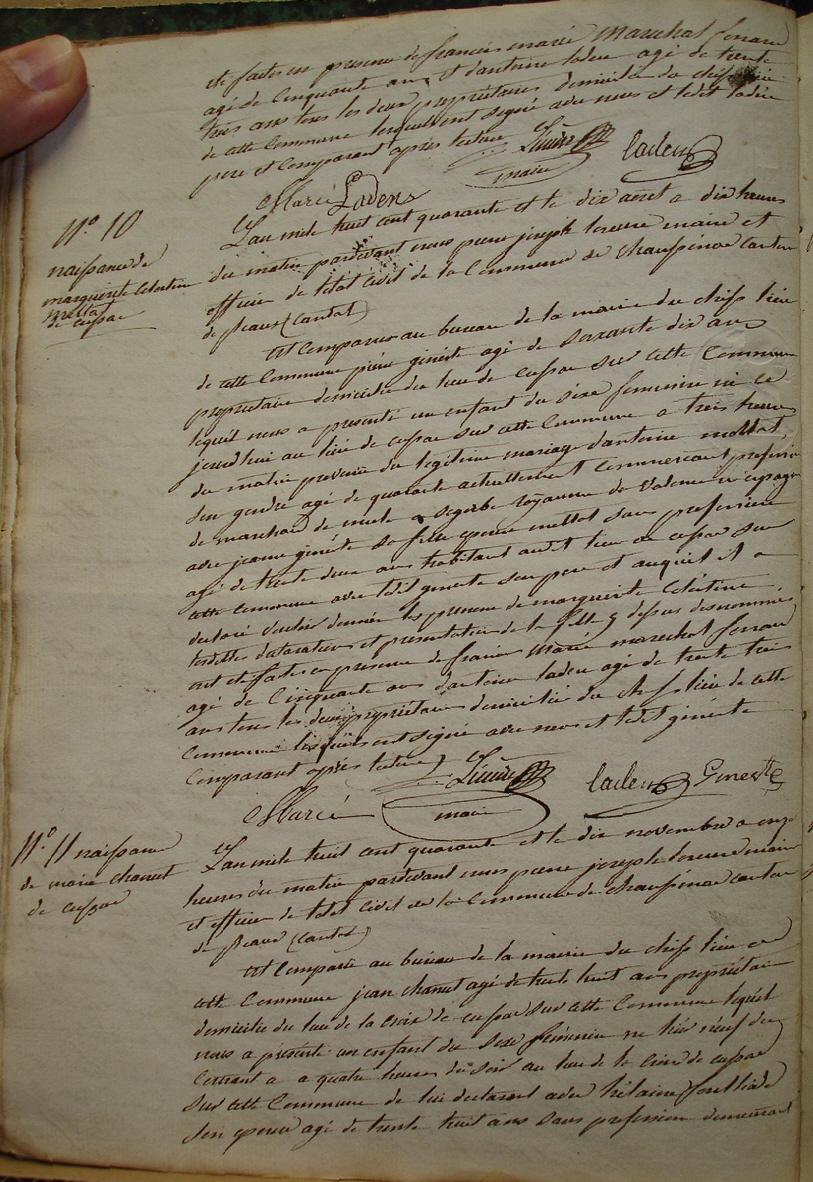 et faites en presence de francois marié marechal ferrand
agé de cinquante ans et d'antoine laden agé de trente
trois ans tous les deux propriétaires domiciliés du chef lieu
de cette Commune lesquels ont signé avec nous et ledit laden
pere et Comparant après lecture
maire
laden
Marié Ladens
N.o 10
naissance de
marguerite Celestine
mellot
de cussac
L'an mile huit cent quarante et le dix aout a dix heures
du matin pardevant nous pierre joseph maire et
officier de l'etat Civil de la Commune de Chaussinac Canton
de pleaux (Cantal)
est Comparu au bureau de la mairie du chef lieu
de cette Commune pierre geneste agé de soixante dix ans
propriétaire domicilié du lieu de cussac sur cette Commune
lequel nous a presenté un enfant du sexe feminin né ce
jourd'hui au lieu de cussac sur cette Commune a trois heures
du matin provenu du legitime mariage d'antoine mellot
son gendre agé de quarante actuellement Commercant profession
de marchand de a segorbe royaume de Valence en espagne
avec jeanne geneste sa fille epouse mellot sans profession
agé de trente deux ans habitant audit lieu de cussac sur
cette Commune avec ledit geneste son pere et auquel il a
declaré vouloir donner les prenoms de marguerite Celestine
lesdittes declaration et presentation de la fille y dessus denommée
ont eté faites en presence de francois Marié marechal ferrand
agé de Cinquante ans d'antoine laden agé de trente trois
ans tous les deux propriétaires domiciliés du chef lieu de cette
Commune lesquels ont signé avec nous et ledit geneste
Comparant après lecture
laden Geneste
Marié
maire
N.o 11 naissance
de marie chanut
de cussac
L'an mile huit cent quarante et le dix novembre a onze
heures du matin pardevant nous pierre joseph maire
et officier de l'etat Civil de la Commune de Chaussinac canton
de pleaux (Cantal)
est Comparu au bureau de la mairie du chef lieu de
cette Commune jean chanut agé de trente huit ans propriétaire
domicilié du lieu de la croix de cussac sur cette Commune lequel
nous a presenté un enfant du sexe féminin né hier neuf du
Courant a quatre heures du soir au lieu de la croix de cussac
sur cette Commune de lui declarant avec hélaine
son epouse agé de trente huit ans sans profession demeurant